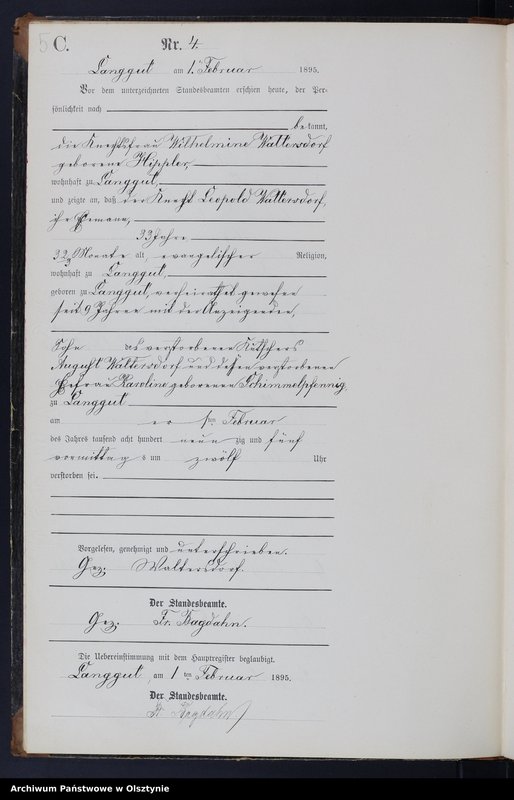 C.
Nr. 4.
Langgut am 1. Februar 1895.
Vor dem unterzeichneten Standesbeamten erschien heute, der Per-
sönlichkeit nach
bekannt,
die Knechtsfrau Wilhelmine Waltersdorf
geborene Hippler,
wohnhaft zu Langgut,
und zeigte an, daß der Knecht Leopold Waltersdorf,
ihr Ehemann,
33 Jahre
3 2/3 Monate alt, evangelischer Religion,
wohnhaft zu Langgut,
geboren zu Langgut, verheirathet gewesen
seit 9 Jahren mit der Anzeigenden,
Sohn des verstorbenen Kutschers
August Waltersdorf und dessen verstorbenen
Ehefrau Karoline geborenen Schimmelpfennig,
zu Langgut
am ten Februar
des Jahres tausend acht hundert neun zig und fünf
vormittags um zwölf Uhr
verstorben sei.
Vorgelesen, genehmigt und unterschrieben.
Gez: Waltersdorf.
Der Standesbeamte.
Gez: Fr. Bagdahn.
Die Uebereinstimmung mit dem Hauptregister beglaubigt.
Langgut, am 1 ten Februar 1895.
Der Standesbeamte.
Fr Bagdahn
Archiwum Państwowe w Olsztynie